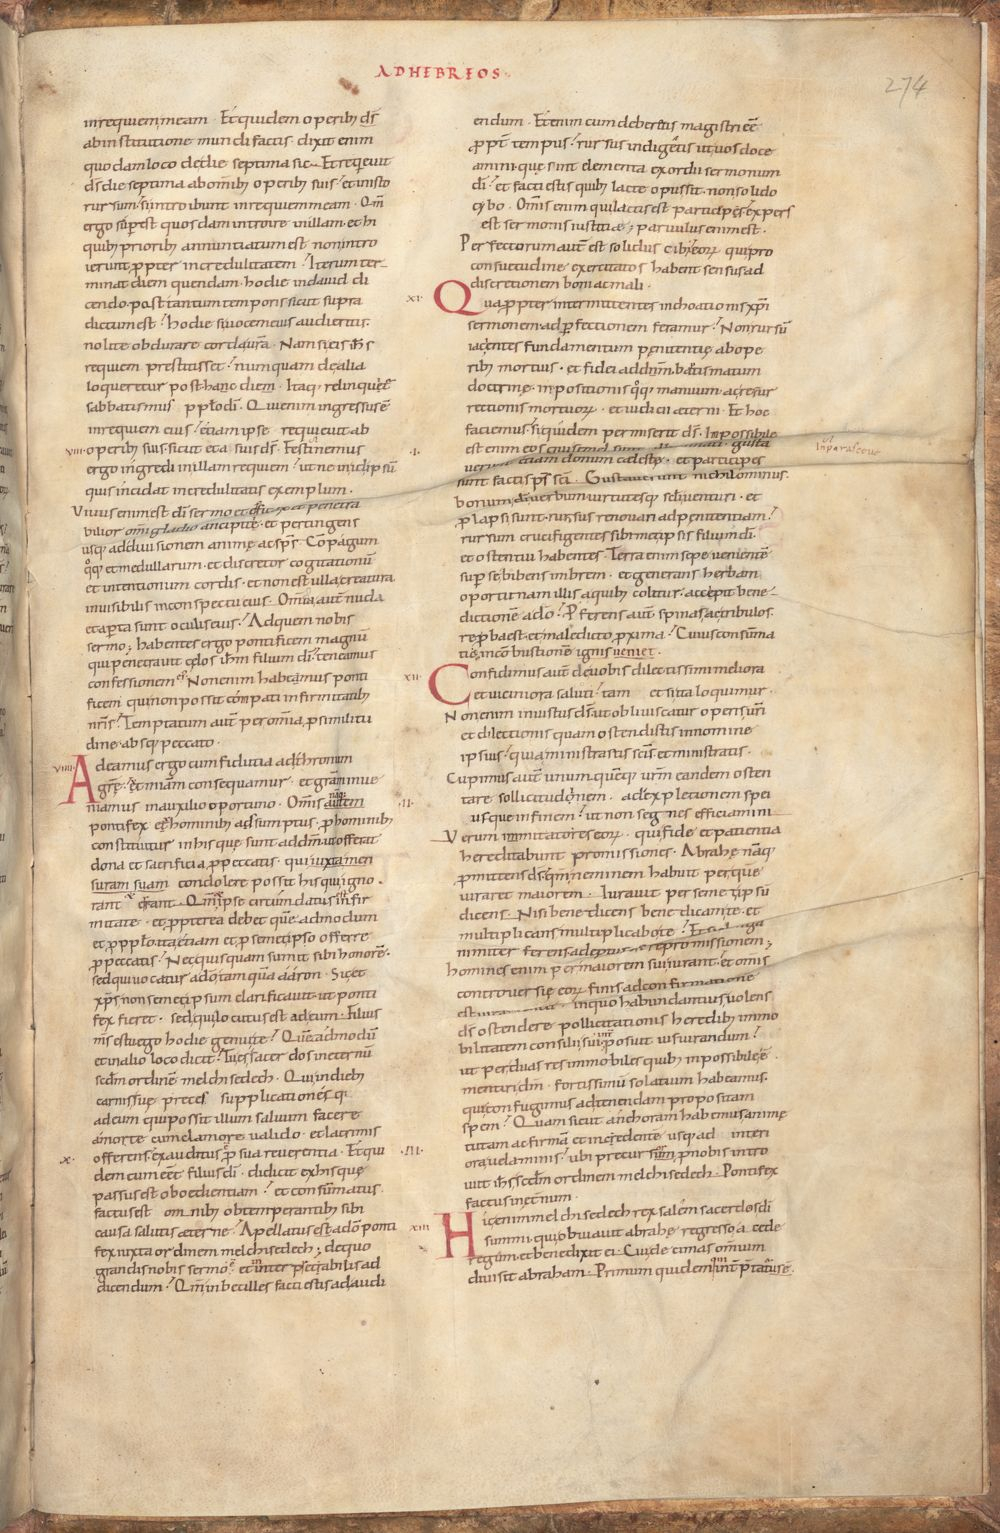 ADHEBREOS
274
inrequiem meam · Et quidem operibꝰ dſ
abinstitutione mundi factis · dixit enim
quodam loco de die septima sic · Et requieuit
dſ die septima abomnibꝰ operibꝰ suis · et inisto
rursum · si introibunt inrequiem meam · Qm̄
ergo sup̄est quosdam introire inillam · et hi
quibꝰ prioribꝰ annuntiatum est non intro
ierunt ꝓpter incredulitatem · Iterum ter
minat diem quendam · hodie indauid di
cendo · post tantum temporis sicut supra
dictum est · hodie si uocem eius audieritis ·
nolite obdurare corda ur̄a · Nam si eis ih̄s
requiem prestitisset · numquam de alia
loqueretur post hanc diem · Itaq; relinquet̄
sabbatismus pp̄lo di · Qui enim ingressus ē
inrequiem eius · etiam ipse requieuit ab
VIII · operibꝰ suis · sicut et a suis dſ · Festinemus · I ·
ergo ingredi inillam requiem · ut ne in id ipsū
quis incidat incredulitatis exemplum ·
Viuus enim est di sermo et efficax et penetra
bilior omni gladio ancipite · et pertingens
usq; addiuisionem anime ac sp̄s · Compagum
q̄q; et medullarum · et discretor cogitationū
et intentionum cordis · et non est ulla creatura
inuisibilis inconspectu eius · Omnia aut̄ nuda
et aperta sunt oculis eius · Adquem nobis
sermo ; habentes ergo pontificem magnū
qui penetrauit celos ih̄m filium di · teneamus
confessionem · Non enim habemus ponti
ficem qui non possit compati infirmitatibꝰ
nr̄is · Temptatum aut̄ per omnia ꝓ similitu
dine absq; peccato ·
VIIII · Adeamus ergo cum fiducia adthronum
gr̄e · ut miām consequamur · et gr̄am inue
niamus inauxilio oportuno · Omnis autem · II ·
pontifex ex hominibꝰ adsumptus · ꝓ hominibꝰ
constituitur inhis que sunt addm̄ · ut offerat
dona et sacrificia ꝓ peccatis · qui iuxta men
suram suam condolere possit his qui igno
rant et errant · Qm̄ et ipse circumdatus est infir
mitate · et ꝓpterea debet quē admodum
et ꝓ pp̄lo · ita etiam et ꝓ semetipso offerre
ꝓ peccatis · Nec quisquam sumit sibi honorē ·
sed qui uocatur a do · tamquā aaron · Sic et
xp̄s non semetipsum clarificauit · ut ponti
fex fieret · sed qui locutus est ad eum · filius
ms̄ es tu ego hodie genui te · Quē admodū
et inalio loco dicit · Tu es sacerdos ineternū
scdm ordinē melchisedech · Qui indiebꝰ
carnis sue preces supplicationes q;
ad eum qui possit illum saluum facere
a morte cum clamore ualido · et lacrimis
X · offerens exauditus ꝓ sua reuerentia · Et qui · III ·
dem cum eēt filius di · didicit exhis que
passus est oboedientiam · et consūmatus
factus est omnibꝰ obtemperantibꝰ sibi
causa salutis eterne · Apellatus est a do ponti
fex iuxta ordinem melchisedech ; de quo
grandis nobis sermo · et interpretabilis ad
dicendum · Qm̄ inbecilles facti estis ad audi
endum · Etenim cum deberetis magistri eē
ꝓpt̄ tempus · rursus indigetis ut uos doce
amini · que sint elementa exordii sermonum
di · et facti estis quibꝰ lacte opus sit · non solido
cybo · Omnis enim qui lactis est particeps expers
est sermonis iustitiae ; paruulus enim est ·
Perfectorum aut̄ est solidus cibus · eorū qui pro
consuetudine exercitatos habent sensus ad
discretionem boni ac mali ·
XI · Quapropter intermittentes inchoationis xp̄i
sermonem · ad ꝑfectionem feramur · Non rursū
iacentes fundamentum penitentie ab ope
ribꝰ mortuis · et fidei addm̄ · batismatum
doctrine · inpositionis q̄q; manuum · ac resur
rectionis mortuorū · et iudicii aeterni · Et hoc
faciemus · siquidem permiserit dſ · Impossibile
est enim eos qui semel sunt inluminati · gusta
uerunt etiam donum caeleste · et participes
sunt facti sp̄s sc̄i · Gustauerunt nichilominus ·
bonum di uerbum uirtutesq; seculi uenturi · et
ꝓlapsi sunt · rursus renouari ad penitentiam ·
rursum crucifigentes sibimetipsis filium di ·
et ostentui habentes · Terra enim sepe uenientē
sup̄ se bibens imbrem · et generans herbam
oportunam illis a quibꝰ colitur · accepit bene
dictionē a do · Proferens aut̄ spinas ac tribulos ·
reproba est · et maledicto ꝓxima · Cuius consūma
tio inconbustionē ignis ueniet ·
XII · Confidimus aut̄ de uobis dilectissimi meliora
et uiciniora saluti · tam et si ita loquimur ·
Non enim iniustus dſ · ut obliuiscatur operis ur̄i
et dilectionis quam ostendistis innomine
ipsius · quia ministrastis scīs · et ministratis ·
Cupimus aut̄ unumquēq; ur̄m eandem osten
tare sollicitudinem · ad expletionem spei
usque infinem · ut non segnes efficiamini
Verum immitatores eorū · qui fide et patientia
hereditabunt promissiones · Abrahe nāq;
ꝓmittens dſ · qm̄ neminem habuit per que
iuraret maiorem · Iurauit per semetipsū
dicens · Nisi benedicens benedicam te · et
multiplicans multiplicabo te · Et sic longa
nimiter ferens adeptus est repromissionem ;
homines enim per maiorem sui iurant · et omnis
controuersie eorū finis ad confirmationē
est iuramentum · inquo habundantius uolens
dſ ostendere pollicitationis heredibꝰ immo
bilitatem consilii sui · interposuit iusiurandum ·
ut per duas res immobiles quibꝰ inpossibile ē
mentiri dm̄ · fortissimū solatium habeamus ·
qui confugimus ad tenendam propositam
spem · Quam sicut anchoram habemus anime
tutam ac firmā et incedente usq; ad interi
ora uelaminis · ubi precursor ꝓ nobis intro
iuit ih̄s scdm ordinem melchisedech · Pontifex
factus in eternum ·
XIII · Hic enim melchisedech rex salem sacerdos di
summi · qui obuiauit abrahe regresso a cede
regum · et benedixit ei · Cui et decimas omnium
diuisit abraham · Primum quidem int̄pretatus ē ·